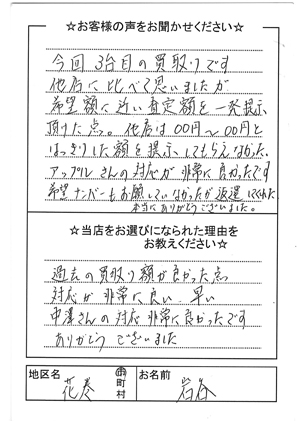 ☆お客様の声をお聞かせください☆
今回3台目の買取りです
他店に比べて思いましたが
希望額に近い査定額を一発提示
頂けた点。他店は〇〇円～〇〇円と
はっきりした額を提示してもらえなかった。
アップルさんの対応が非常に良かったです
希望ナンバーもお願いしていなかったが返還してくれた
本当にありがとうございました。
☆当店をお選びになられた理由を
お教えください☆
過去の買取り額が良かった点
対応が非常に良い、早い
中澤さんの対応非常に良かったです
ありがとうございました
地区名
花巻
市町村
お名前
岩谷